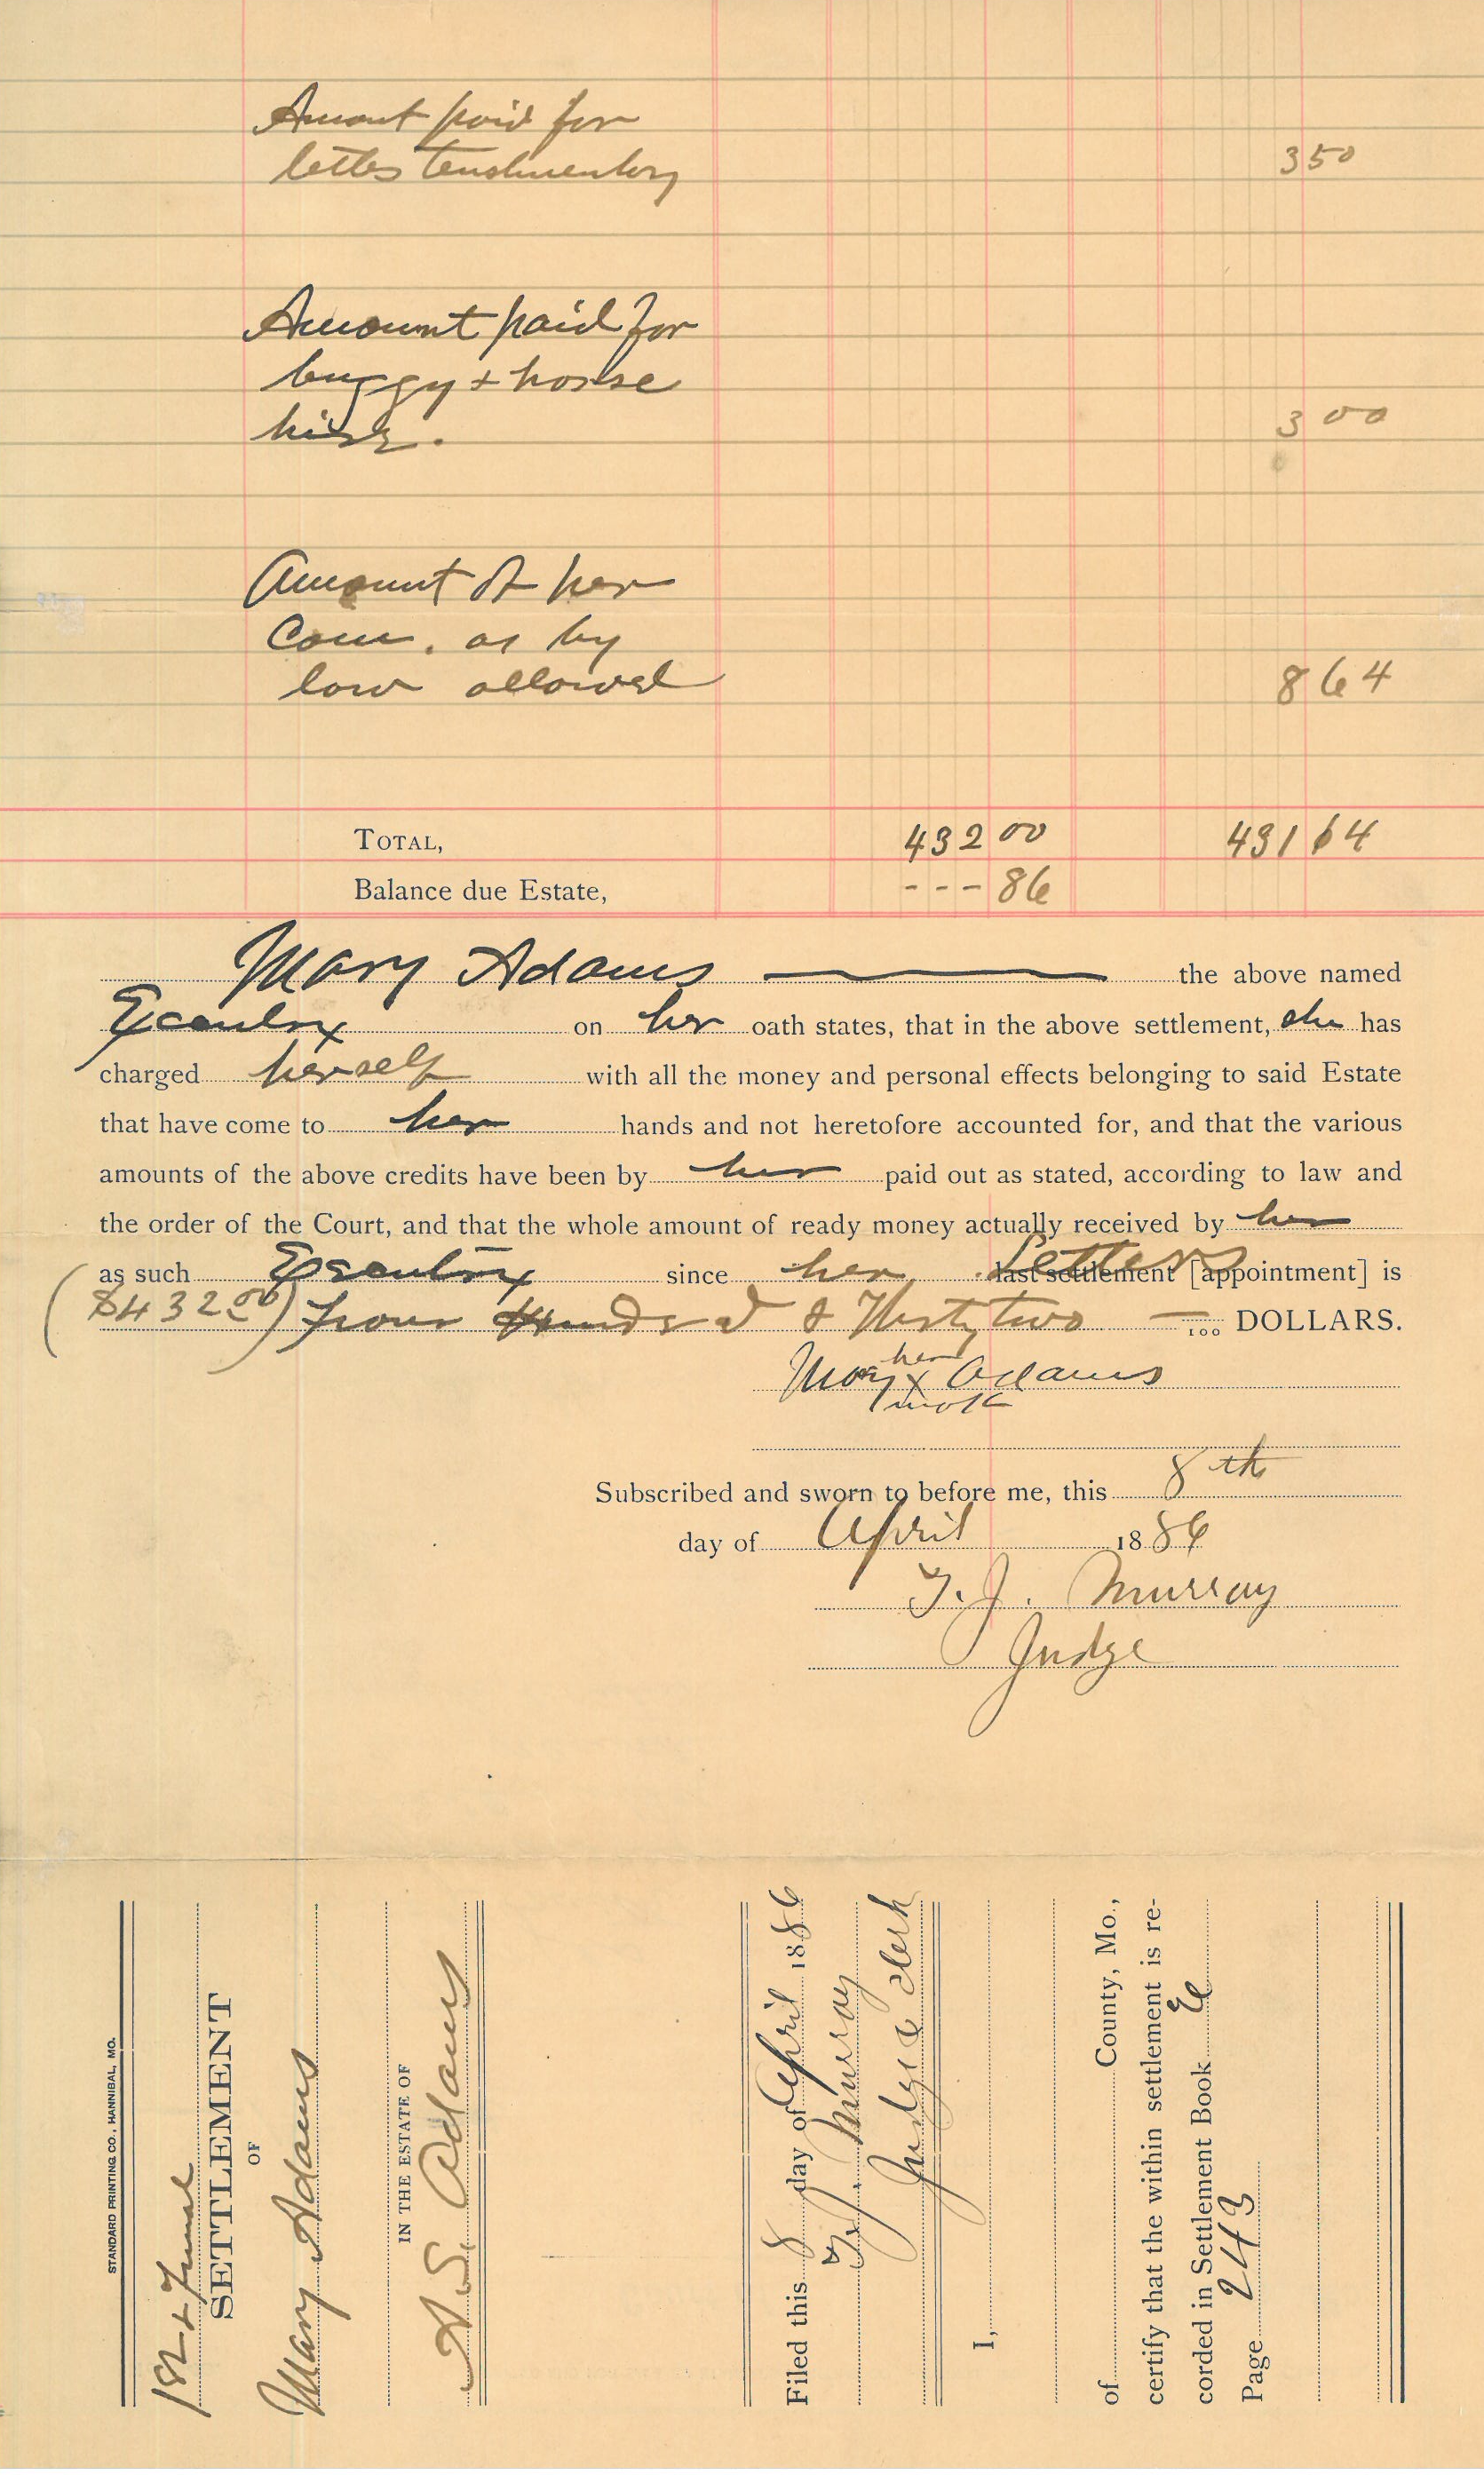 Amount paid for
letters testamentary 3 50
Amount paid for
buggy + horse
hire. 3 00
Amount of her
Com. as by
law allowed 8 64
TOTAL, 432 00 431 14
Balance due Estate, - - - 86
Mary Adams the above named
Executrix on her oath states, that in the above settlement, she has
charged herself with all the money and personal effects belonging to said Estate
that have come to her hands and not heretofore accounted for, and that the various
amounts of the above credits have been by her paid out as stated, according to law and
the order of the Court, and that the whole amount of ready money actually received by her
as such Executrix since her Letters last settlement [appointment] is
($432.00) four Hundred & Thirty two — 100 DOLLARS.
her
Mary x Adams
mark
Subscribed and sworn to before me, this 8th
day of April 1886
T. J. Murray
Judge
STANDARD PRINTING CO., HANNIBAL, MO.
1st + Final
SETTLEMENT
OF
Mary Adams
IN THE ESTATE OF
A. S. Adams
Filed this 8 day of April 1886
T. J. Murray
Judge & Clerk
I,
of County, Mo.,
certify that the within settlement is re-
corded in Settlement Book E
Page 243